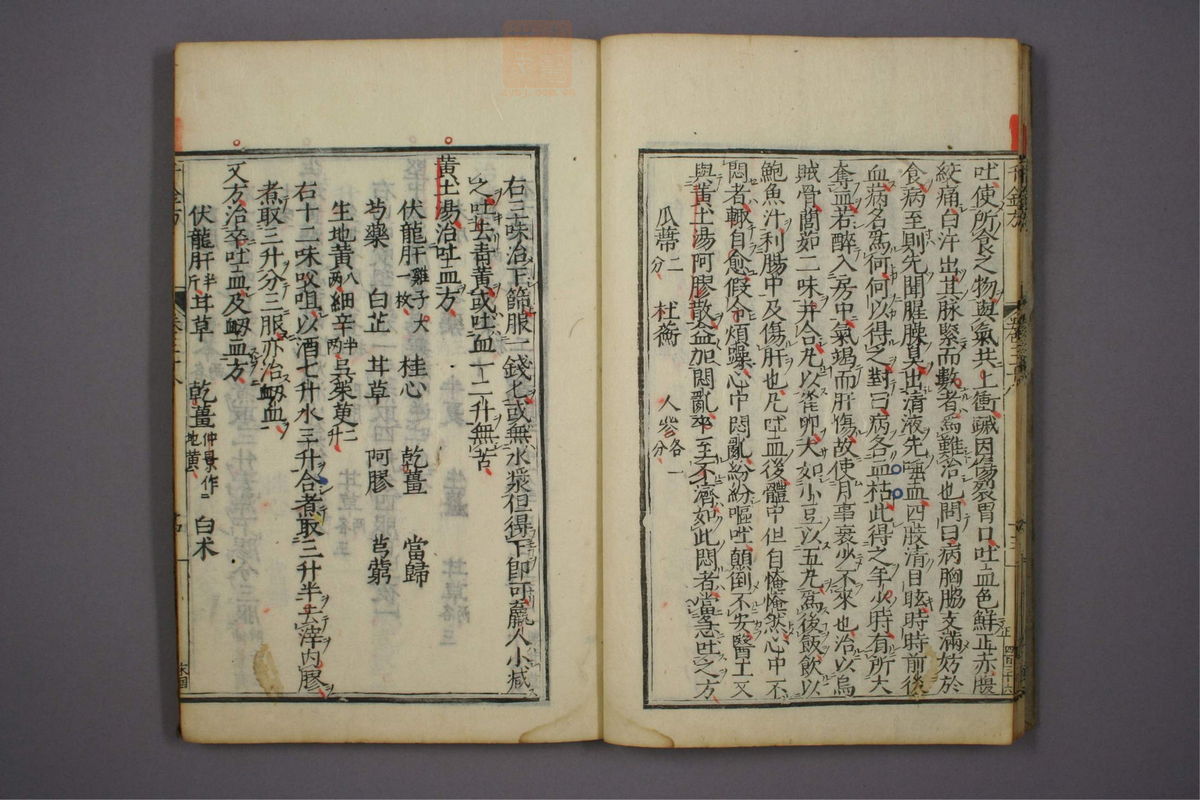 吐使所食之物與氣共上衝䠞因傷裂胃口吐血色鮮正赤腹
絞痛白汗出其脉緊而數者爲難治也問曰病胸脇支滿妨於
食病至則先聞腥臊臭出清液先唾血四肢清目眩時時前後
血病名爲何何以得之對曰病名血枯此得之年少時有所大
奪血若醉入房中氣竭而肝傷故使月事衰少不來也治以烏
賊骨䕡茹二味并合丸以雀卵大如小豆以五丸爲後飯飲以
鮑魚汁利腸中及傷肝也凡吐血後體中但自㤿㤿然心中不
悶者輒自愈假令煩躁心中悶亂紛紛嘔吐顛倒不安醫工又
與黃土湯阿膠散益加悶亂卒至不濟如此悶者當急吐之方
瓜蔕二分 杜蘅 人參各一分
右三味治下篩服一錢匕或無水漿但得下即可羸人小減
之吐去青黃或吐血一二升無苦
黃土湯治吐血方
伏龍肝雞子大一枚 桂心 乾薑 當歸
芍藥 白芷 甘草 阿膠 芎藭
生地黃八兩 細辛半兩 吳茱萸二升
右十二味㕮咀以酒七升水三升合煮取三升半去滓内膠
煮取三升分三服亦治衂血
又方治卒吐血及衂血方
伏龍肝半斤 甘草 乾薑仲景作地黃 白术